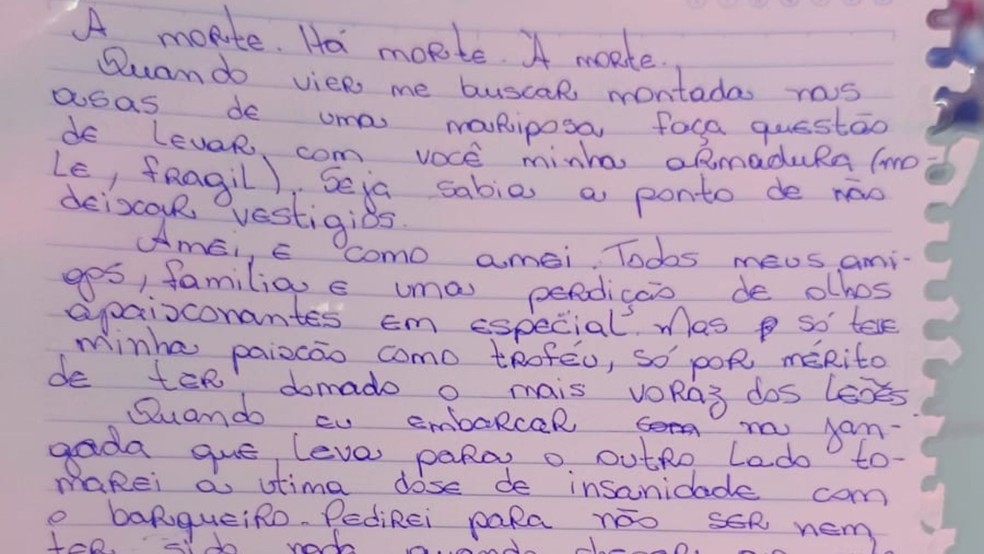 A morte. Há morte. À morte.
Quando vier me buscar montada nas
asas de uma mariposa faça questão
de levar com você minha armadura (mo-
le, fragil). Seja sabia a ponto de não
deixar vestigios.
Amei, e como amei. Todos meus ami-
gos, familia e uma perdição de olhos
apaixonantes em especial. Mas só teve
minha paixcão como troféu, só por mérito
de ter domado o mais voraz dos leões.
Quando eu embarcar na jan-
gada que leva para o outro lado to-
marei a utima dose de insanidade com
o barqueiro. Pedirei para não ser nem
ter sido nada quando